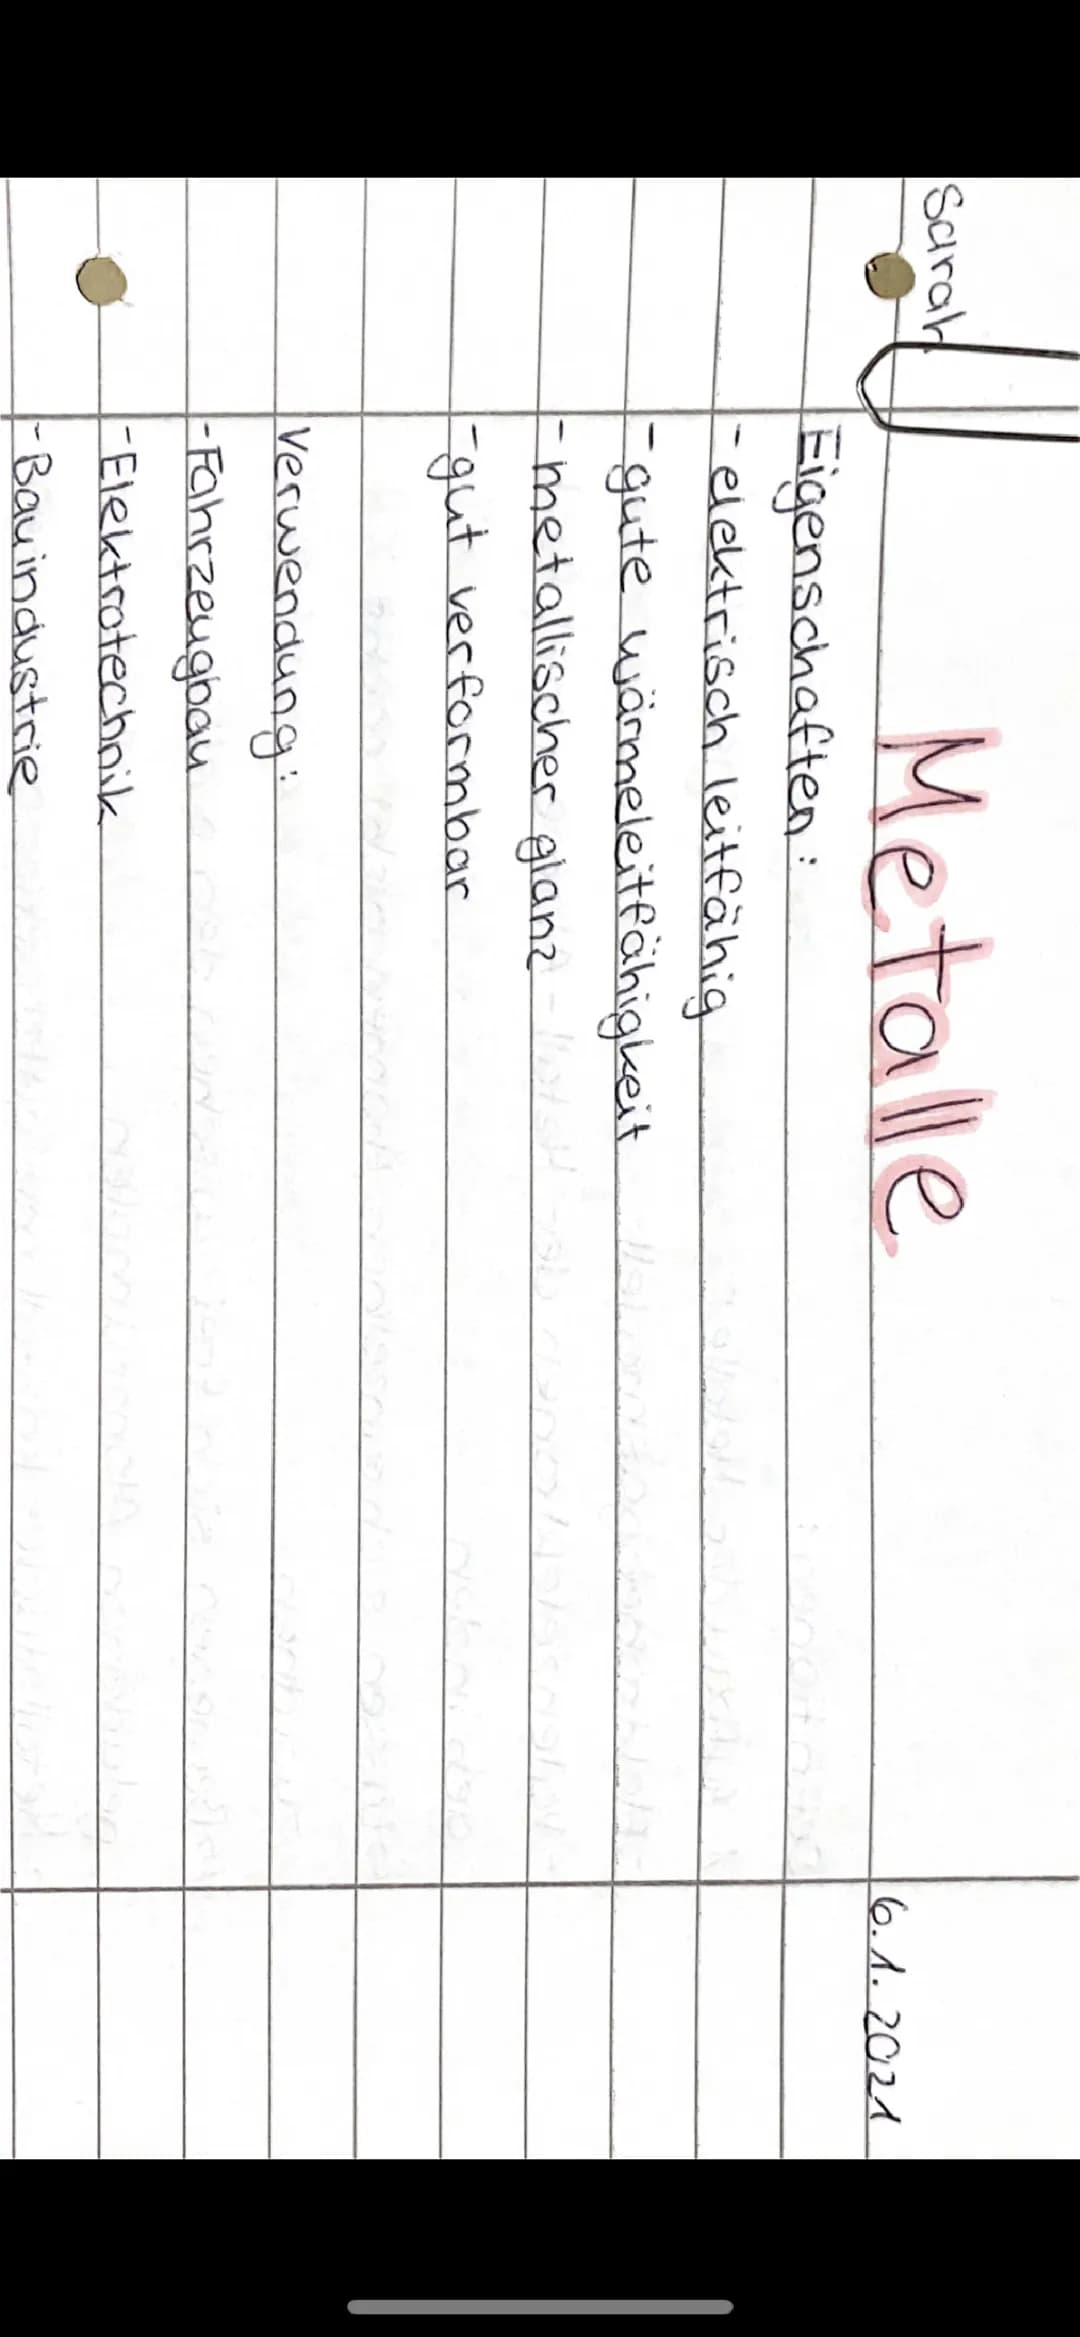 Sarah
Metalle
6.1.2021
Eigenschaften:
- elektrisch leitfähig
- gute wärmeleitfähigkeit
- metallischer glanz
- gut verformbar
Verwendung:
- Fahrzeugbau
- Elektrotechnik
- Bauindustrie